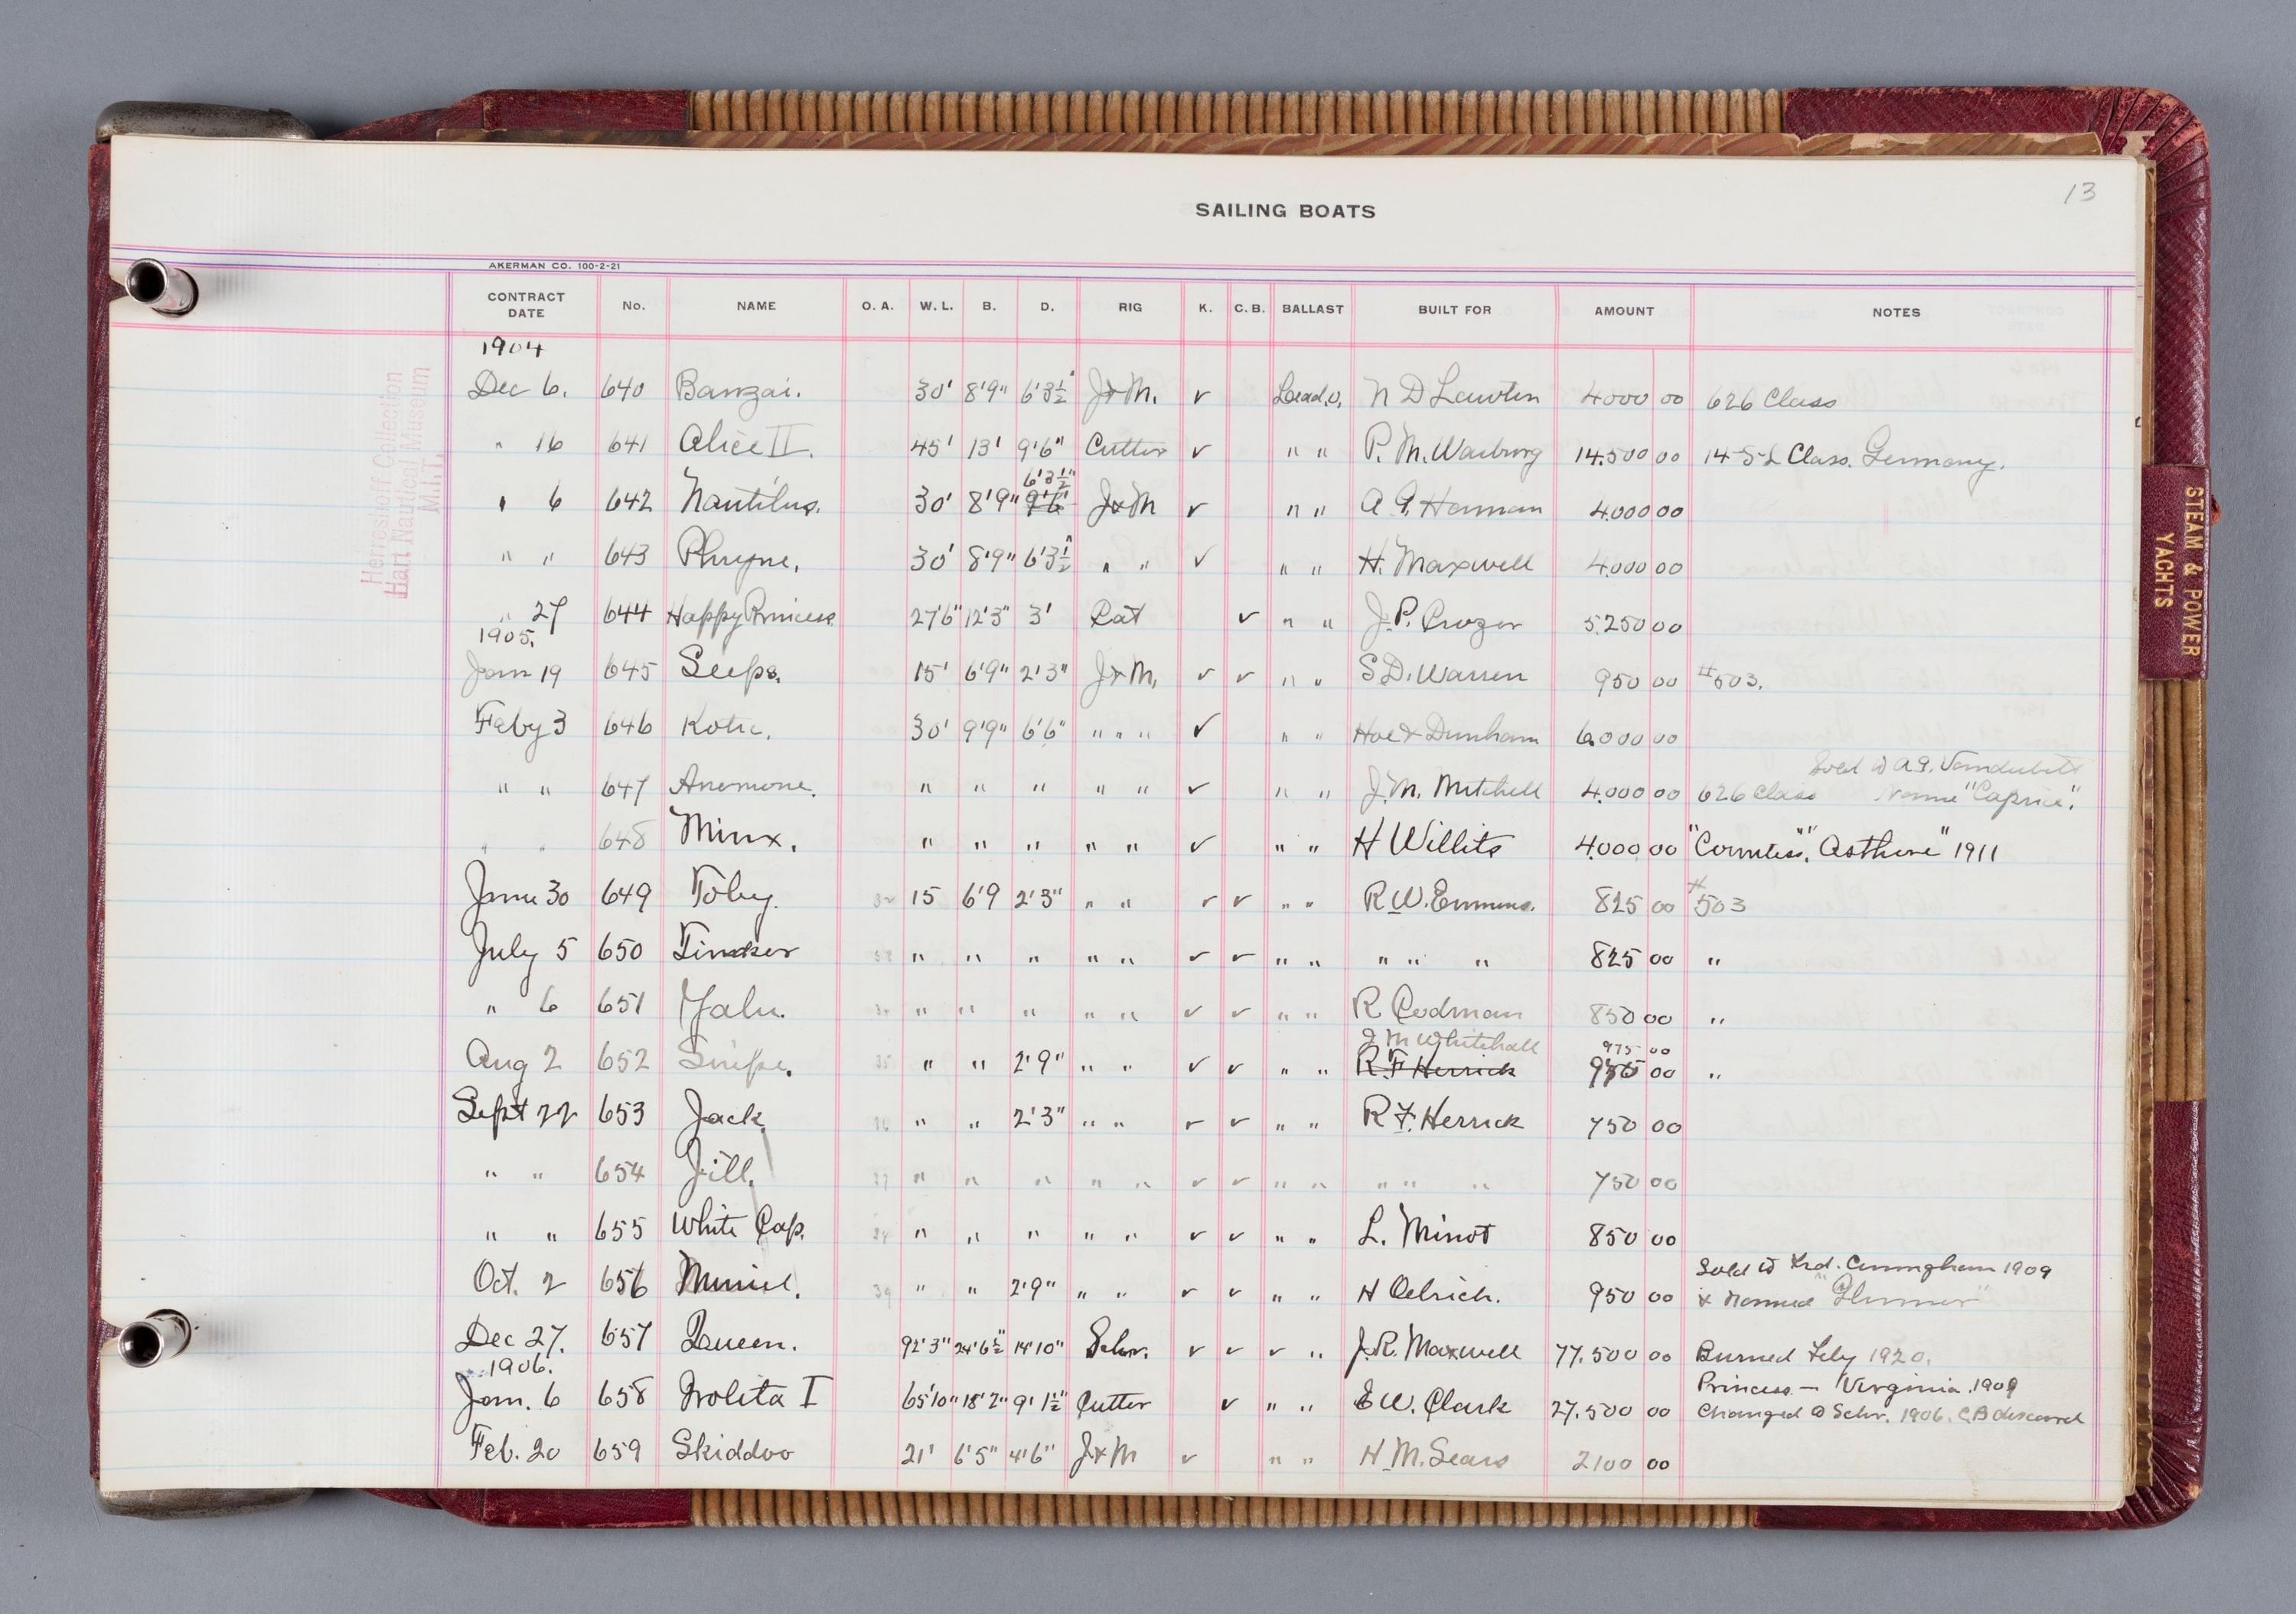 13
SAILING BOATS
AKERMAN CO. 100-2-21
CONTRACT DATE No. NAME O. A. W. L. B. D. RIG K. C. B. BALLAST BUILT FOR AMOUNT NOTES
1904
Dec 6. 640 Banzai. 30' 8'9" 6'3½" J&M. ✓ Lead.O. N D Lawton 4000 00 626 Class
" 16 641 Alice II. 45' 13' 9'6" Cutter ✓ " " P. M. Warburg 14.500 00 14-S-L Class. Germany.
6'3½"
" 6 642 Nautilus. 30' 8'9" 9'6" J&M ✓ " " A. G. Hanan 4.000 00
" " 643 Phryne. 30' 8'9" 6'3½" " " ✓ " " H. Maxwell 4.000 00
" 27 644 Happy Princess 27'6" 12'3" 3' Cat ✓ " " J. P. Crozer 5.250 00
1905.
Jan 19 645 Seeps. 15' 6'9" 2'3" J&M. ✓ ✓ " " S D. Warren 950 00 #503.
Feby 3 646 Kotic. 30' 9'9" 6'6" " " " ✓ " " Hoe & Dunham 6.000 00
Sold to A G. Vanderbilt
" " 647 Anemone. " " " " " ✓ " " J. M. Mitchell 4.000 00 626 Class Name "Caprice".
" " 648 Minx. " " " " " ✓ " " H Willits 4.000 00 "Countess". " 1911
June 30 649 Toby. 32 15 6'9 2'3" " " ✓ ✓ " " R W. Emmons. 825 00 #503
July 5 650 Tinker 33 " " " " " ✓ ✓ " " " " " 825 00 "
" 6 651 Yalu. 34 " " " " " ✓ ✓ " " R Codman 850 00 "
J M Whitehall 975 00
Aug 2 652 Snipe. 35 " " 2'9" " " ✓ ✓ " " R. F Herrick 00 "
Sept 22 653 Jack 36 " " 2'3" " " ✓ ✓ " " R F. Herrick 750 00
" " 654 Jill. 37 " " " " " ✓ ✓ " " " " " 750 00
" " 655 White Cap. 38 " " " " " ✓ ✓ " " L. Minot 850 00
Sold to Frd. Cunningham 1909
Oct. 2 656 Muriel. 39 " " 2'9" " " ✓ ✓ " " H Oelrich. 950 00 & Named
Dec 27. 657 Queen. 92'3" 24'6½" 14'10" Schr. ✓ ✓ ✓ " J. R. Maxwell 77.500 00 Burned Feby 1920.
1906. Princess — Virginia. 1909
Jan. 6 658 Irolita I 65'10" 18'2" 9'1½" Cutter ✓ " " E W. Clark 27.500 00 Changed to Schr. 1906. C,B discarrd
Feb. 20 659 Skiddoo 21' 6'5" 4'6" J&M ✓ " " H. M. Sears 2100 00
Herreshoff Collection
Hart Nautical Museum
M.I.T.
STEAM & POWER
YACHTS